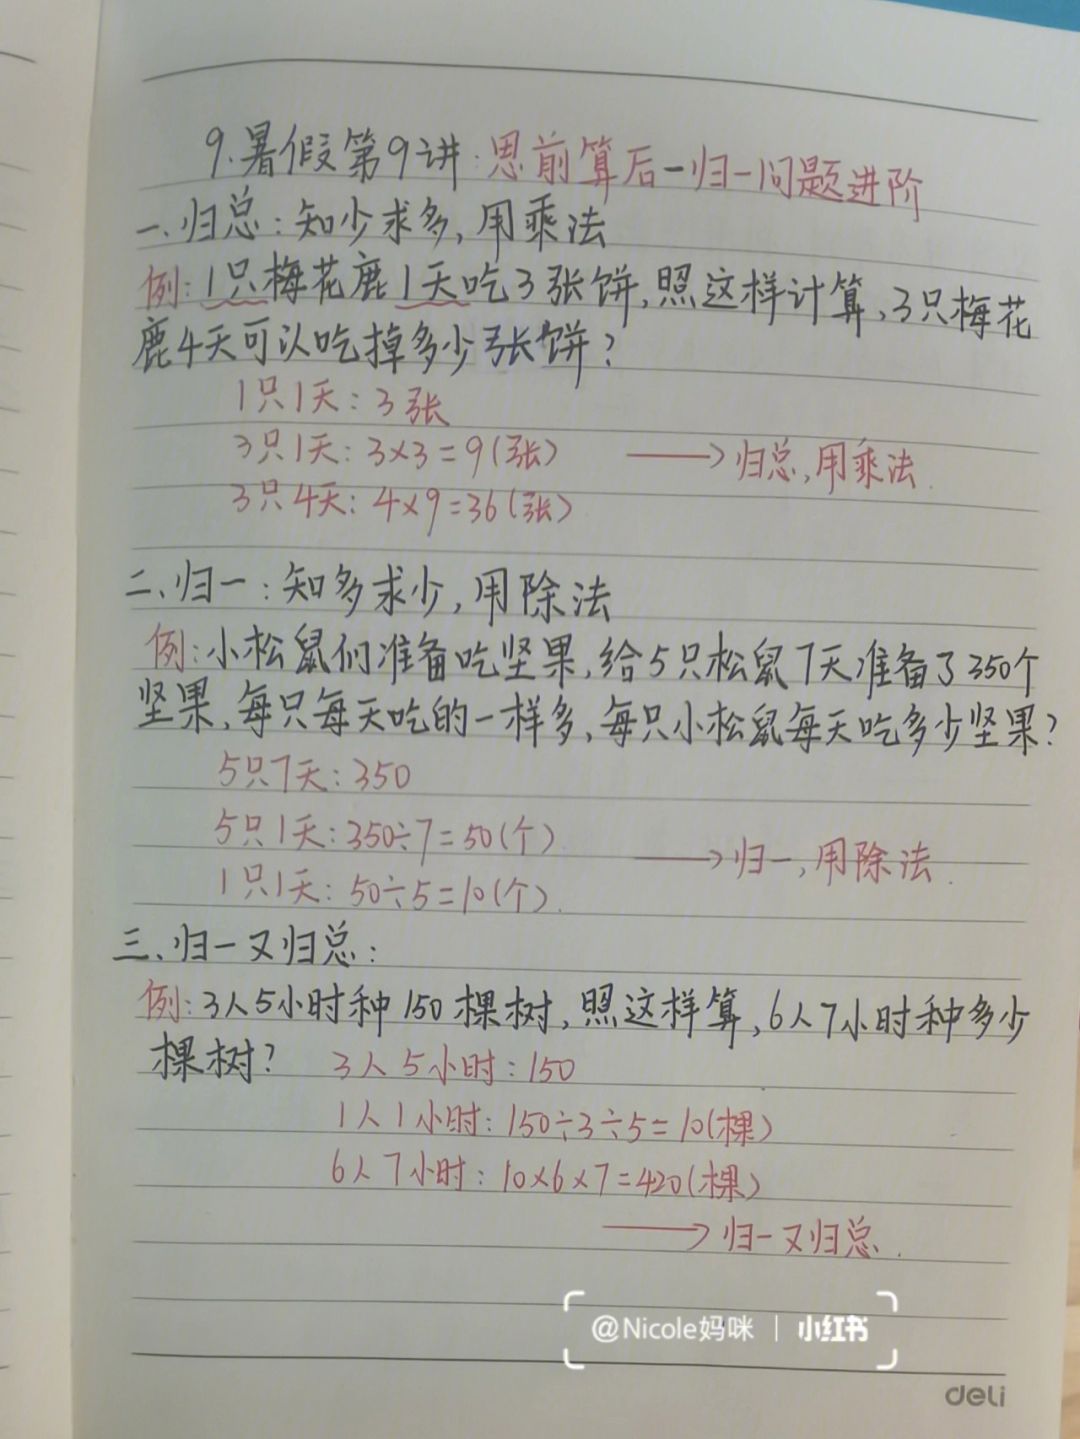 9.暑假第9讲:思前算后-归一问题进阶
一、归总:知少求多,用乘法
例:1只梅花鹿1天吃3张饼,照这样计算,3只梅花
鹿4天可以吃掉多少张饼?
1只1天:3张
3只1天:3×3=9(张)
3只4天:4×9=36(张)
→归总,用乘法.
二、归一:知多求少,用除法
例:小松鼠们准备吃坚果,给5只松鼠7天准备了350个
坚果,每只每天吃的一样多,每只小松鼠每天吃多少坚果?
5只7天:350
5只1天:350÷7=50(个)
1只1天:50÷5=10(个).
→归一,用除法.
三、归一又归总:
例:3人5小时种150棵树,照这样算,6人7小时种多少
棵树?
3人5小时:150
1人1小时:150÷3÷5=10(棵)
6人7小时:10×6×7=420(棵)
→归一又归总.
@Nicole妈咪 | 小红书
deli